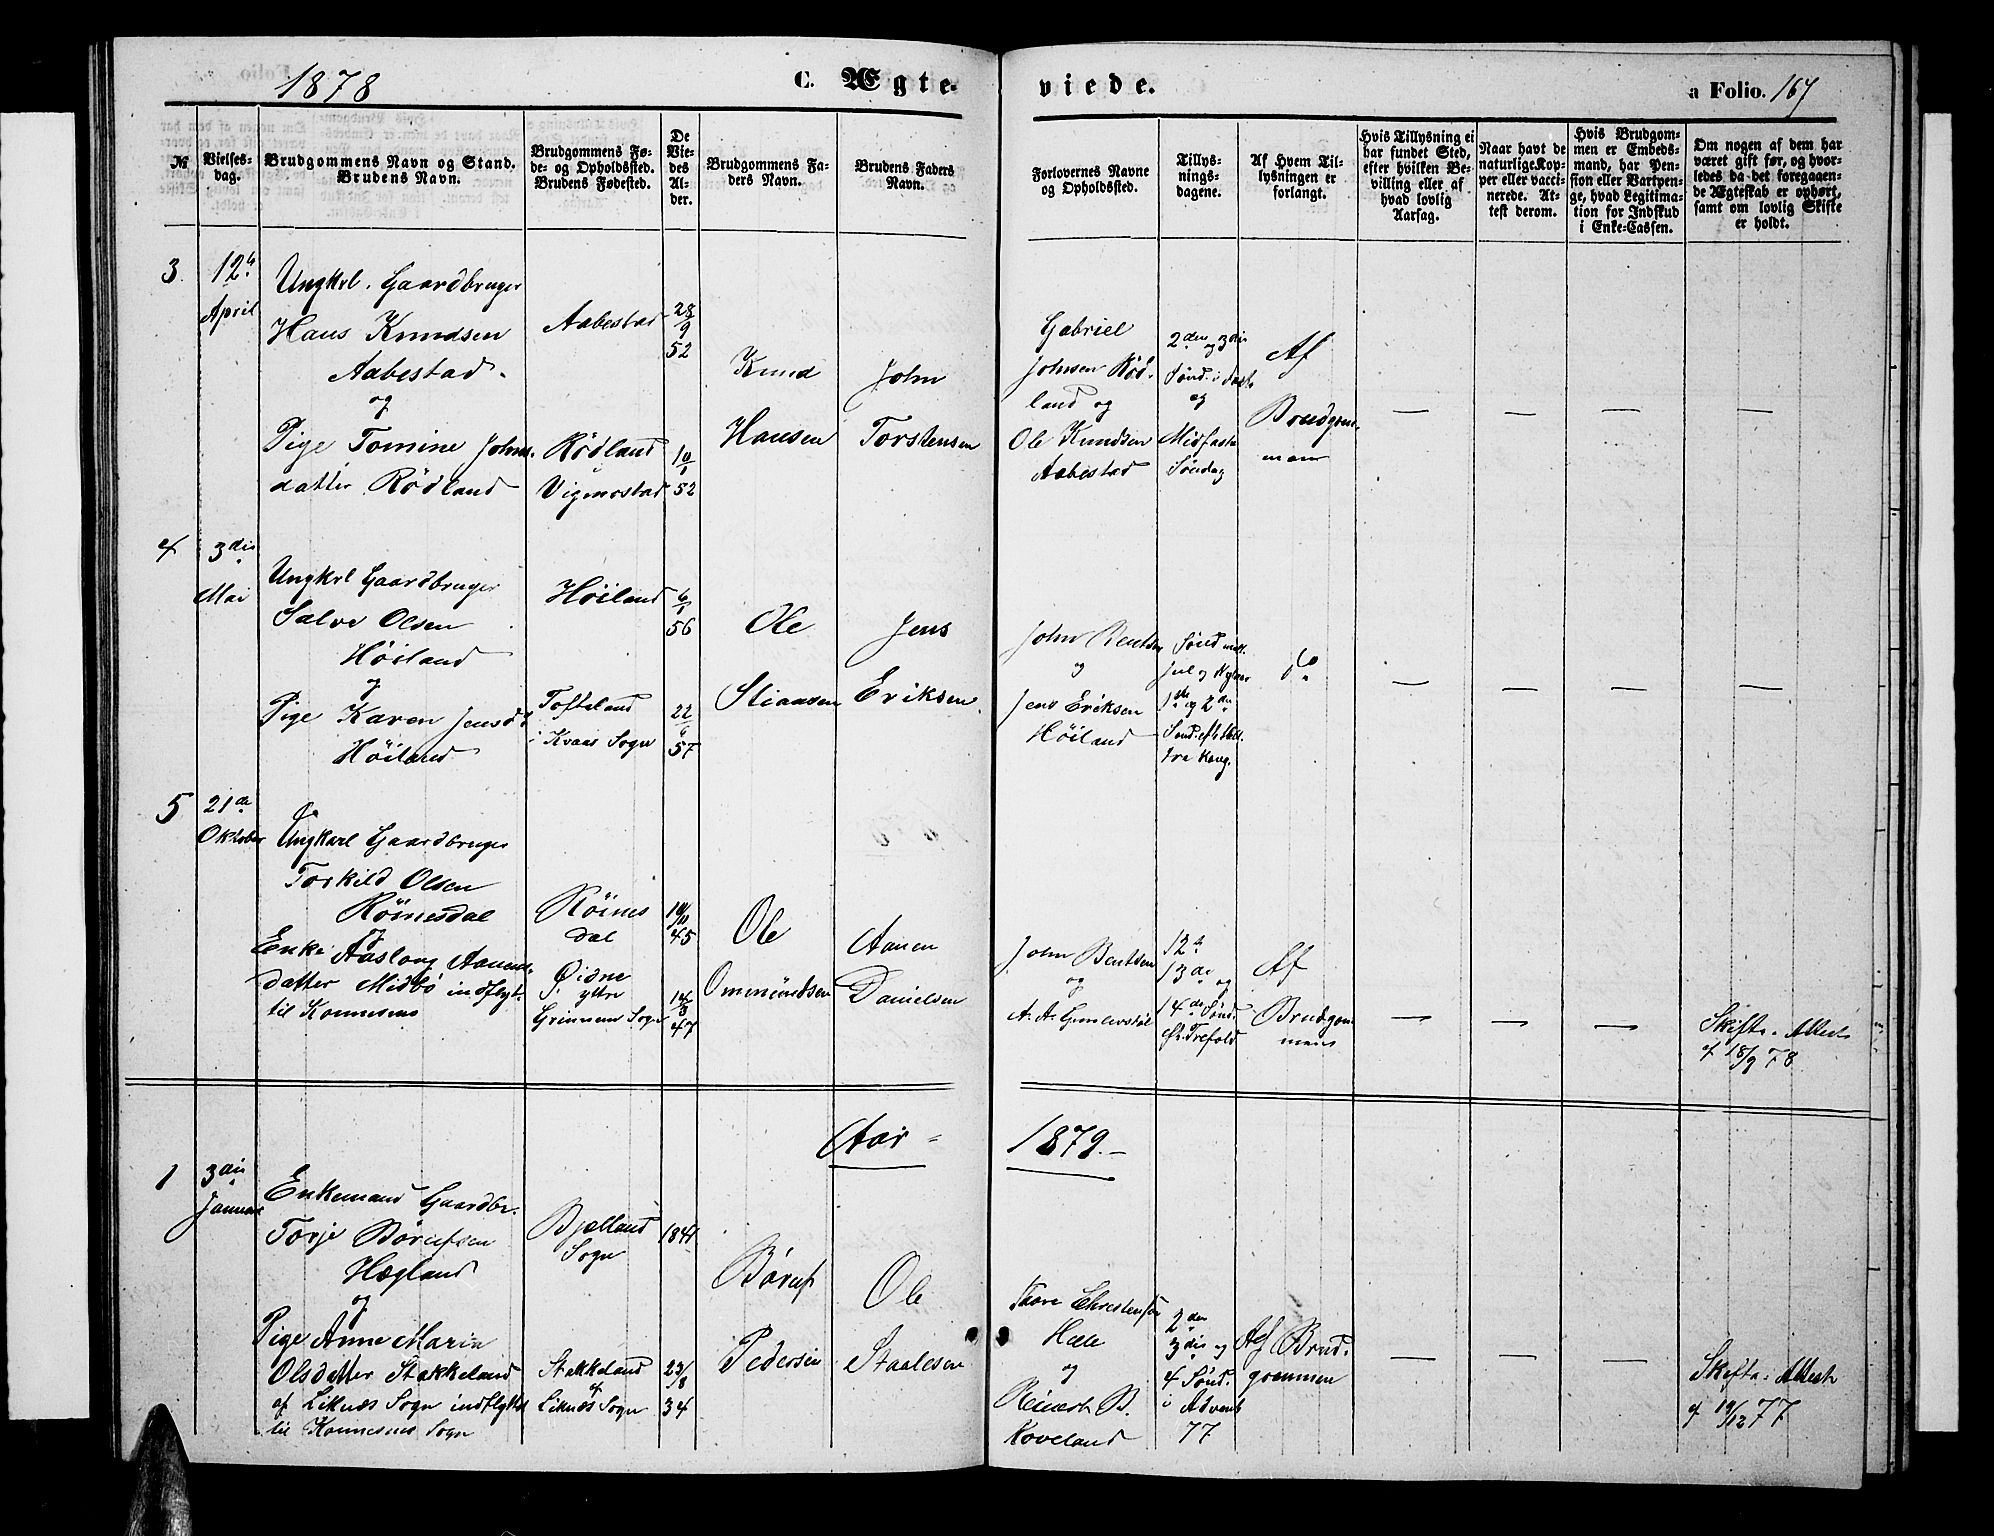 1878
C. Ægte-
viede.
a Folio. 167
№
Vielses-
dag.
Brudgommens Navn og Stand.
Brudens Navn.
Brudgommens Fø-
de- og Opholdssted.
Brudens Fødested.
De
Vie-
des
Al-
der.
Brudgommens Fa-
ders Navn.
Brudens Faders
Navn.
Forlovernes Navne
og Opholdssted.
Tillys-
nings-
dagene.
Af Hvem Til-
lysningen er
forlangt.
Hvis Tillysning ei
har fundet Sted,
efter hvilken Be-
villing eller af
hvad lovlig
Aarsag.
Naar havt de
naturlige Kop-
per eller vacci-
nerede. At-
test derom.
Hvis Brudgom-
men er Embeds-
mand, har Pen-
sion eller Vartpen-
ge, hvad Legitima-
tion for Indskud
i Enke-Cassen.
Om nogen af dem har
været gift før, og hvor-
ledes da det foregaaen-
de Ægteskab er ophørt,
samt om lovlig Skifte
er holdt.
3.
12te
April
Ungkrl. Gaardbruger
Hans Knudsen
Aabestad.
og
Pige Tomine Johns-
datter Rödland
Aabestad
Rödland
Vigmostad
28/9
52
10/1
52
Knud
Hansen
John
Torstensen
Gabriel
Johnsen Röd-
land og
Ole Knudsen
Aabestad
2den og 3die
Sönd. i Faste
og
Midfaste
Söndag
Af
Brudgom-
men
4
3die
Mai
Ungkrl Gaardbruger
Salve Olsen
Höiland
og
Pige Karen Jensdt
Höiland
Höiland
Tofteland
i Kvaas Sogn
6/1
56
22/6
57
Ole
Stiansen
Jens
Eriksen
John Bentsen
og
Jens Eriksen
Höiland
Sönd. mell.
Jul og Nytaar
1ste og 2den
Sönd. eft. Hell.
tre Kong.
do
5
21de
Oktober
Ungkarl Gaardbruger
Torkild Olsen
Röinesdal
og
Enke Aaslaug Aanens-
datter Midbö indflyt.
til Konnesmo
Röines
dal
Öidne
ytre
Grinnem Sogn
10/11
45
14/3
47
Ole
Ommundsen
Aanen
Danielsen
John Bentsen
og
A. A. Gumlestöl
12te
13de og
14de Sönd.
Ef. Trefold.
Af
Brudgom-
men
Skifte-Attest
af 18/9 78
Aar - 1879.-
1
3die
Januar
Enkemand Gaardbr.
Torje Börufsen
Hægland
og
Pige Anne Marie
Olsdatter Stakkeland
af Liknæs Sogn indflyttet
til Konnesmo Sogn
Bjelland
Sogn
Stakkeland
af
Liknæs Sogn
1841
23/8
34
Böruf
Pedersen
Ole
Staalesen
Tore Christensen
Hæle
og
Reinert B.
Koveland
2den
3die og
4 Sönd.
i Advent
77
Af Brud-
gommen
Skifte-Attest
af 19/12 77